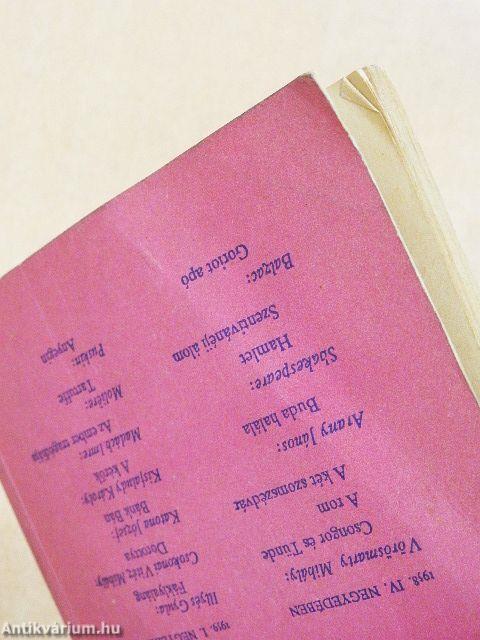 1958. IV. NEGYEDÉBEN
Vörösmarty Mihály:
Csongor és Tünde
A rom
A két szomszédvár
Arany János:
Buda halála
Shakespeare:
Hamlet
Szentivánéji álom
Balzac:
Goriot apó
1959. I.
Illyés Gyula:
Fáklyaláng
Csokonai Vitéz Mihály:
Dorottya
Katona József:
Bánk Bán
Kisfaludy Károly:
A kérők
Madách Imre:
Az ember tragédiája
Molière:
Tartuffe
Puskin:
Anyegin
Antikvárium.hu